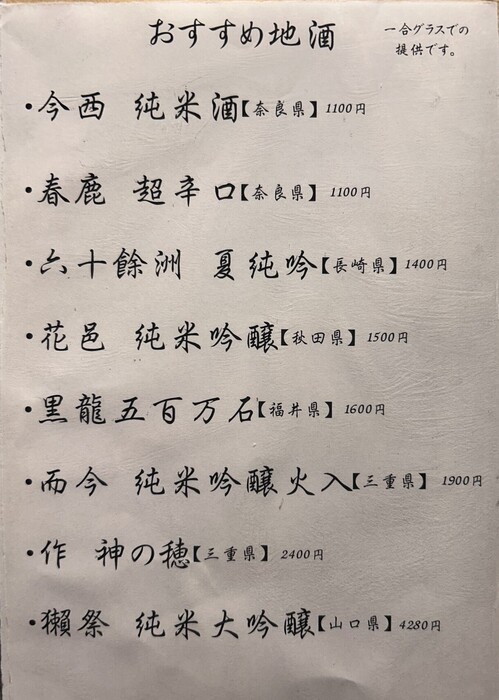 おすすめ地酒
一合グラスでの
提供です。
・今西 純米酒【奈良県】1100円
・春鹿 超辛口【奈良県】1100円
・六十餘洲 夏純吟【長崎県】1400円
・花邑 純米吟醸【秋田県】1500円
・黒龍五百万石【福井県】1600円
・而今 純米吟醸火入【三重県】1900円
・作 神の穂【三重県】2400円
・獺祭 純米大吟醸【山口県】4280円